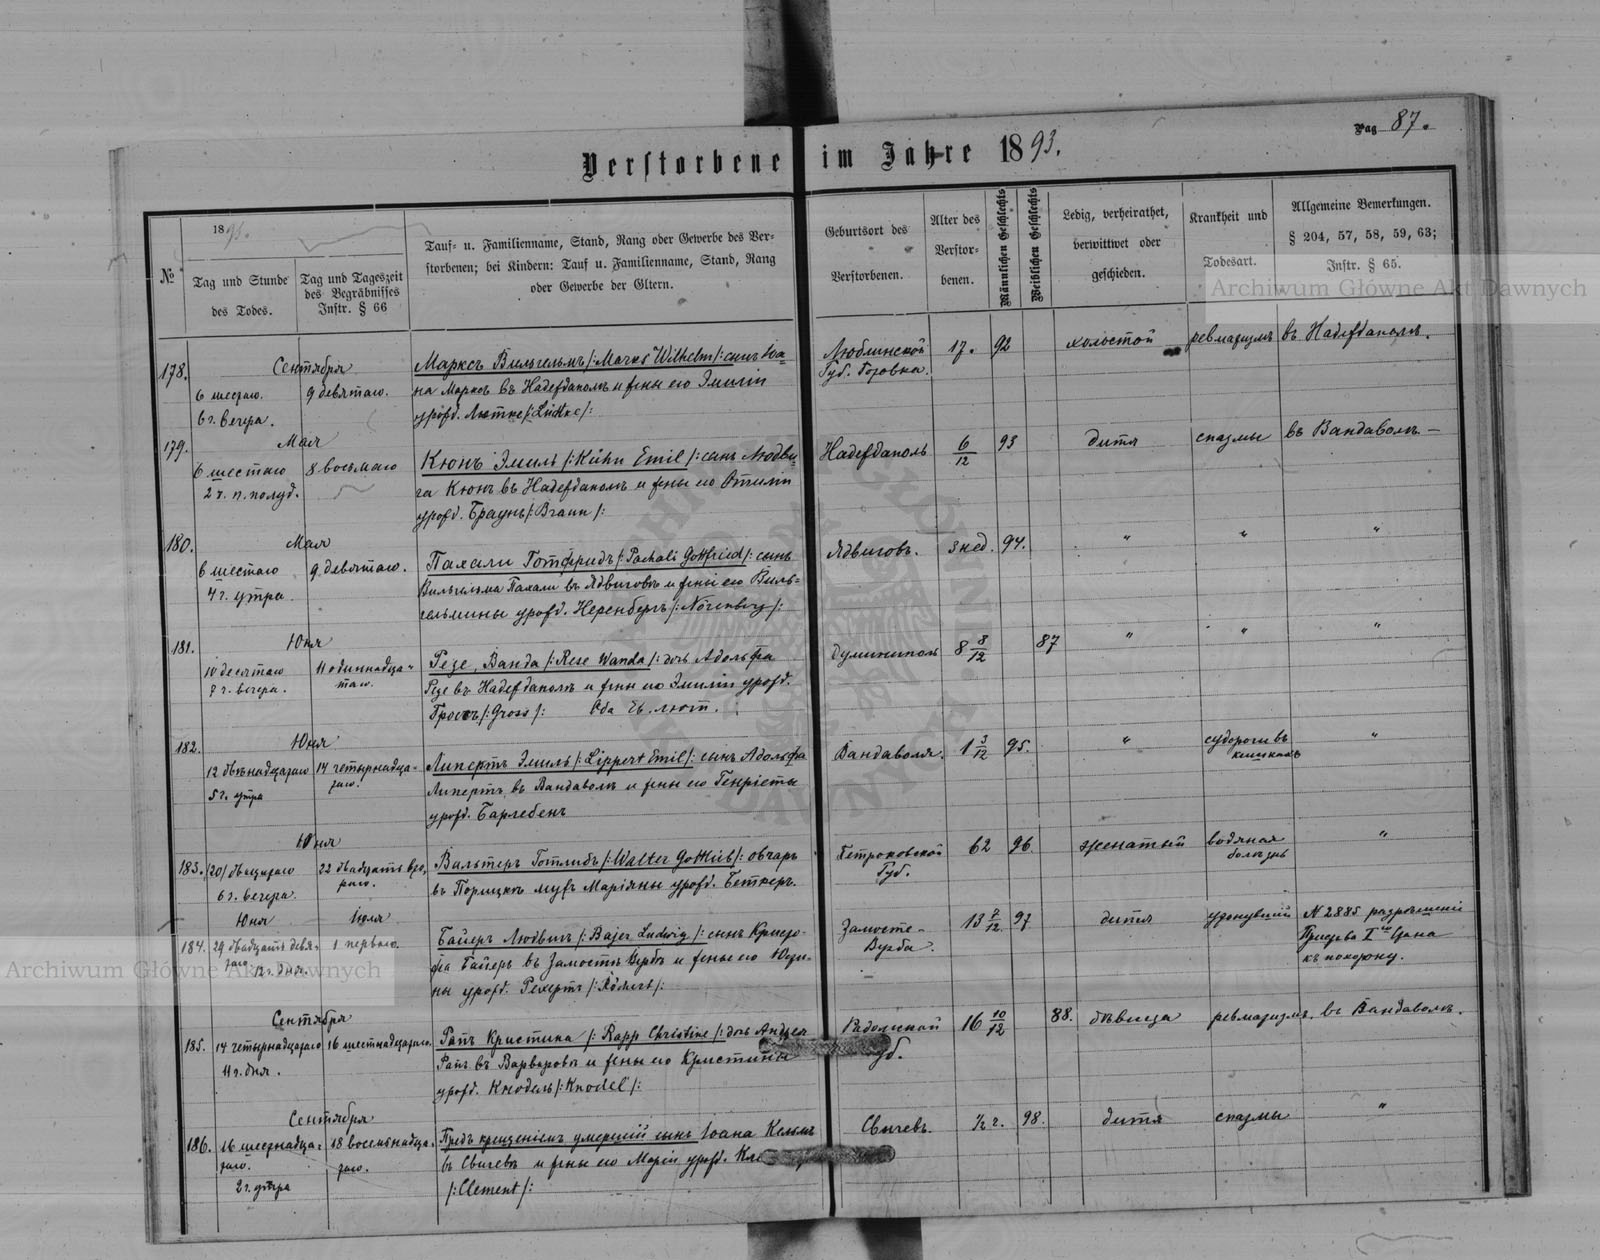 Pag 87.
Verstorbene im Jahre 1893.
№
1893.
Tag und Stunde
des Todes.
Tag und Tageszeit
des Begräbnisses
Instr. § 66
Tauf- u. Familienname, Stand, Rang oder Gewerbe des Ver-
storbenen; bei Kindern: Tauf u. Familienname, Stand, Rang
oder Gewerbe der Eltern.
Geburtsort des
Verstorbenen.
Alter des
Verstor-
benen.
Männlichen Geschlechts
Weiblichen Geschlechts
Ledig, verheirathet,
verwittwet oder
geschieden.
Krankheit und
Todesart.
Allgemeine Bemerkungen.
§ 204, 57, 58, 59, 63;
Instr. § 65.
178.
Сентября
6 шестаго.
6 г. вечера.
9 девятаго.
Марксъ Вильгельмъ /: Marks Wilhelm /: сынъ Іоа-
на Марксъ въ Надеждаполѣ и жены его Эмиліи
урожд. Лютке /: Lüdtke /:
Люблинской
Губ.
17.
92
холостой
ревматизмъ
въ Надеждаполѣ.
179.
Мая
6 шестаго
2 ч. п. полуд.
8 восьмаго
Кюнъ Эмиль /: Kühn Emil /: сынъ Людви-
га Кюнъ въ Надеждаполѣ и жены его Отиліи
урожд. Браунъ /: Braun /:
Надеждаполь
6/12
93
дитя
спазмы
въ Вандаволѣ. —
180.
Мая
6 шестаго
4 г. утра
9 девятаго.
Пахали Готфридъ /: Pachali Gottfried /: сынъ
Вильгельма Пахали въ Ядвиговѣ и жены его Виль-
гельмины урожд. Неренбергъ /: Nörenberg /:
Ядвиговъ.
3 нед.
94.
"
"
"
181.
Юня
10 десятаго
7 г. вечера.
11 одиннадца-
таго.
Резе, Ванда /: Rese Wanda /: дочь Адольфа
Резе въ Надеждаполѣ и жены его Эмиліи урожд.
Гроссъ /: Gross /: Оба Ев. лют.
8 8/12
87
"
"
"
182.
Юня
12 двѣнадцатаго
5 г. утра
14 четырнадца-
таго.
Липертъ Эмиль /: Lippert Emil /: сынъ Адольфа
Липертъ въ Вандаволѣ и жены его Генріеты
урожд. Барлебенъ
Вандаволя.
1 3/12
95.
"
судороги въ
кишкахъ
"
183.
Юня
(20) двадцатаго
6 г. вечера.
22 двадцать вто-
раго.
Вальтеръ Готлибъ /: Walter Gottlieb /: овчаръ
въ Порицкѣ мужъ Маріяны урожд. Беткеръ.
Петроковской
Губ.
62
96.
женатый
водяная
болѣзнь
"
184.
Юня
29 двадцать девя-
таго
12 г. дня.
Іюля
1 перваго.
Байеръ Людвигъ /: Bajer Ludwig /: сынъ Кристо-
фа Байеръ въ Замостѣ Вурбѣ и жены его Юзи-
ны урожд. Рехертъ
Замосте-
Вурба.
13 7/12
97
дитя
удонувшій
N 2885 разрѣшеніи
къ похорону.
185.
Сентября
14 четырнадцатаго
11 г. дня.
16 шестнадцатаго.
Рапъ Кристина /: Rapp Christine /: дочь Андрея
Рапъ въ Варваровѣ и жены его Кристины
урожд. Кнодель /: Knodel /:
Радомской
16 10/12
88.
дѣвица
ревматизмъ.
въ Вандаволѣ.
186.
Сентября
16 шестнадца-
таго.
2 г. утра
18 восемнадца-
таго.
Предъ крещеніемъ умершій сынъ Іоана Кельмъ
въ Свичевѣ и жены его Маріи урожд.
/: Clement /:
Свичевъ.
1/2 г.
98.
дитя
спазмы
"
Archiwum Główne Akt Dawnych
Archiwum Główne Akt Dawnych